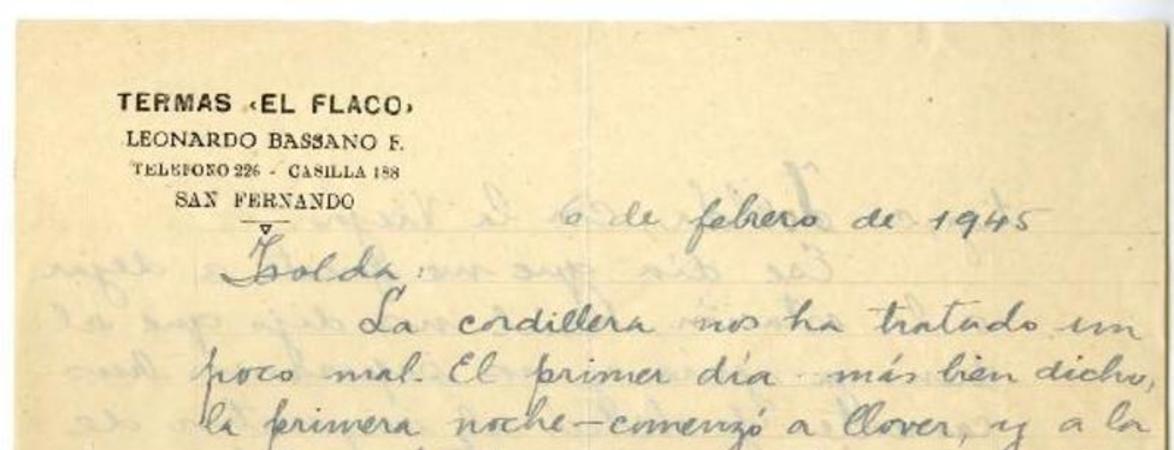 TERMAS «EL FLACO»
LEONARDO BASSANO F.
TELEFONO 226 - CASILLA 188
SAN FERNANDO
6 de febrero de 1945
Isolda:
La cordillera nos ha tratado un
poco mal. El primer día - más bien dicho,
la primera noche - comenzó a llover, y a la